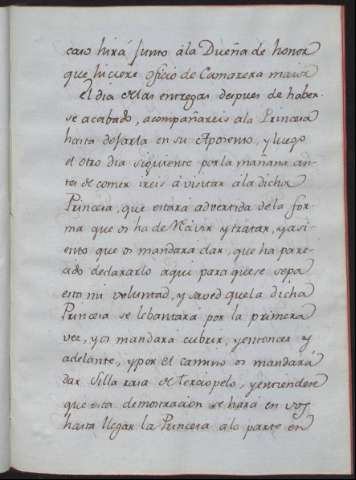 caso hirá junto álа Dueña de honor
que hiciere oficio de Camarera maior
El dia de las entregas despues de haber-
se acabado, acompañareis ala Princesa
hasta dejarla en su Aposento, y luego
el otro dia siguiente por la mañana an-
tes de comer ireis á visitar ála dicha
Princesa, que estará advertida dela for-
ma que os ha de Recivir y tratar, y asi-
ento que os mandara dar, que ha pare-
cido declararlo aqui para que se sepa
esto mi voluntad, y saved que la dicha
Princesa se lebantará por la primera
vez, y os mandará cubrir, y entonces y
adelante, y por el camino os mandará
dar Silla rasa de Terciopelo, y entiendese
que esta demostracion se hará en vos
hasta llegar la Princesa álo parte en